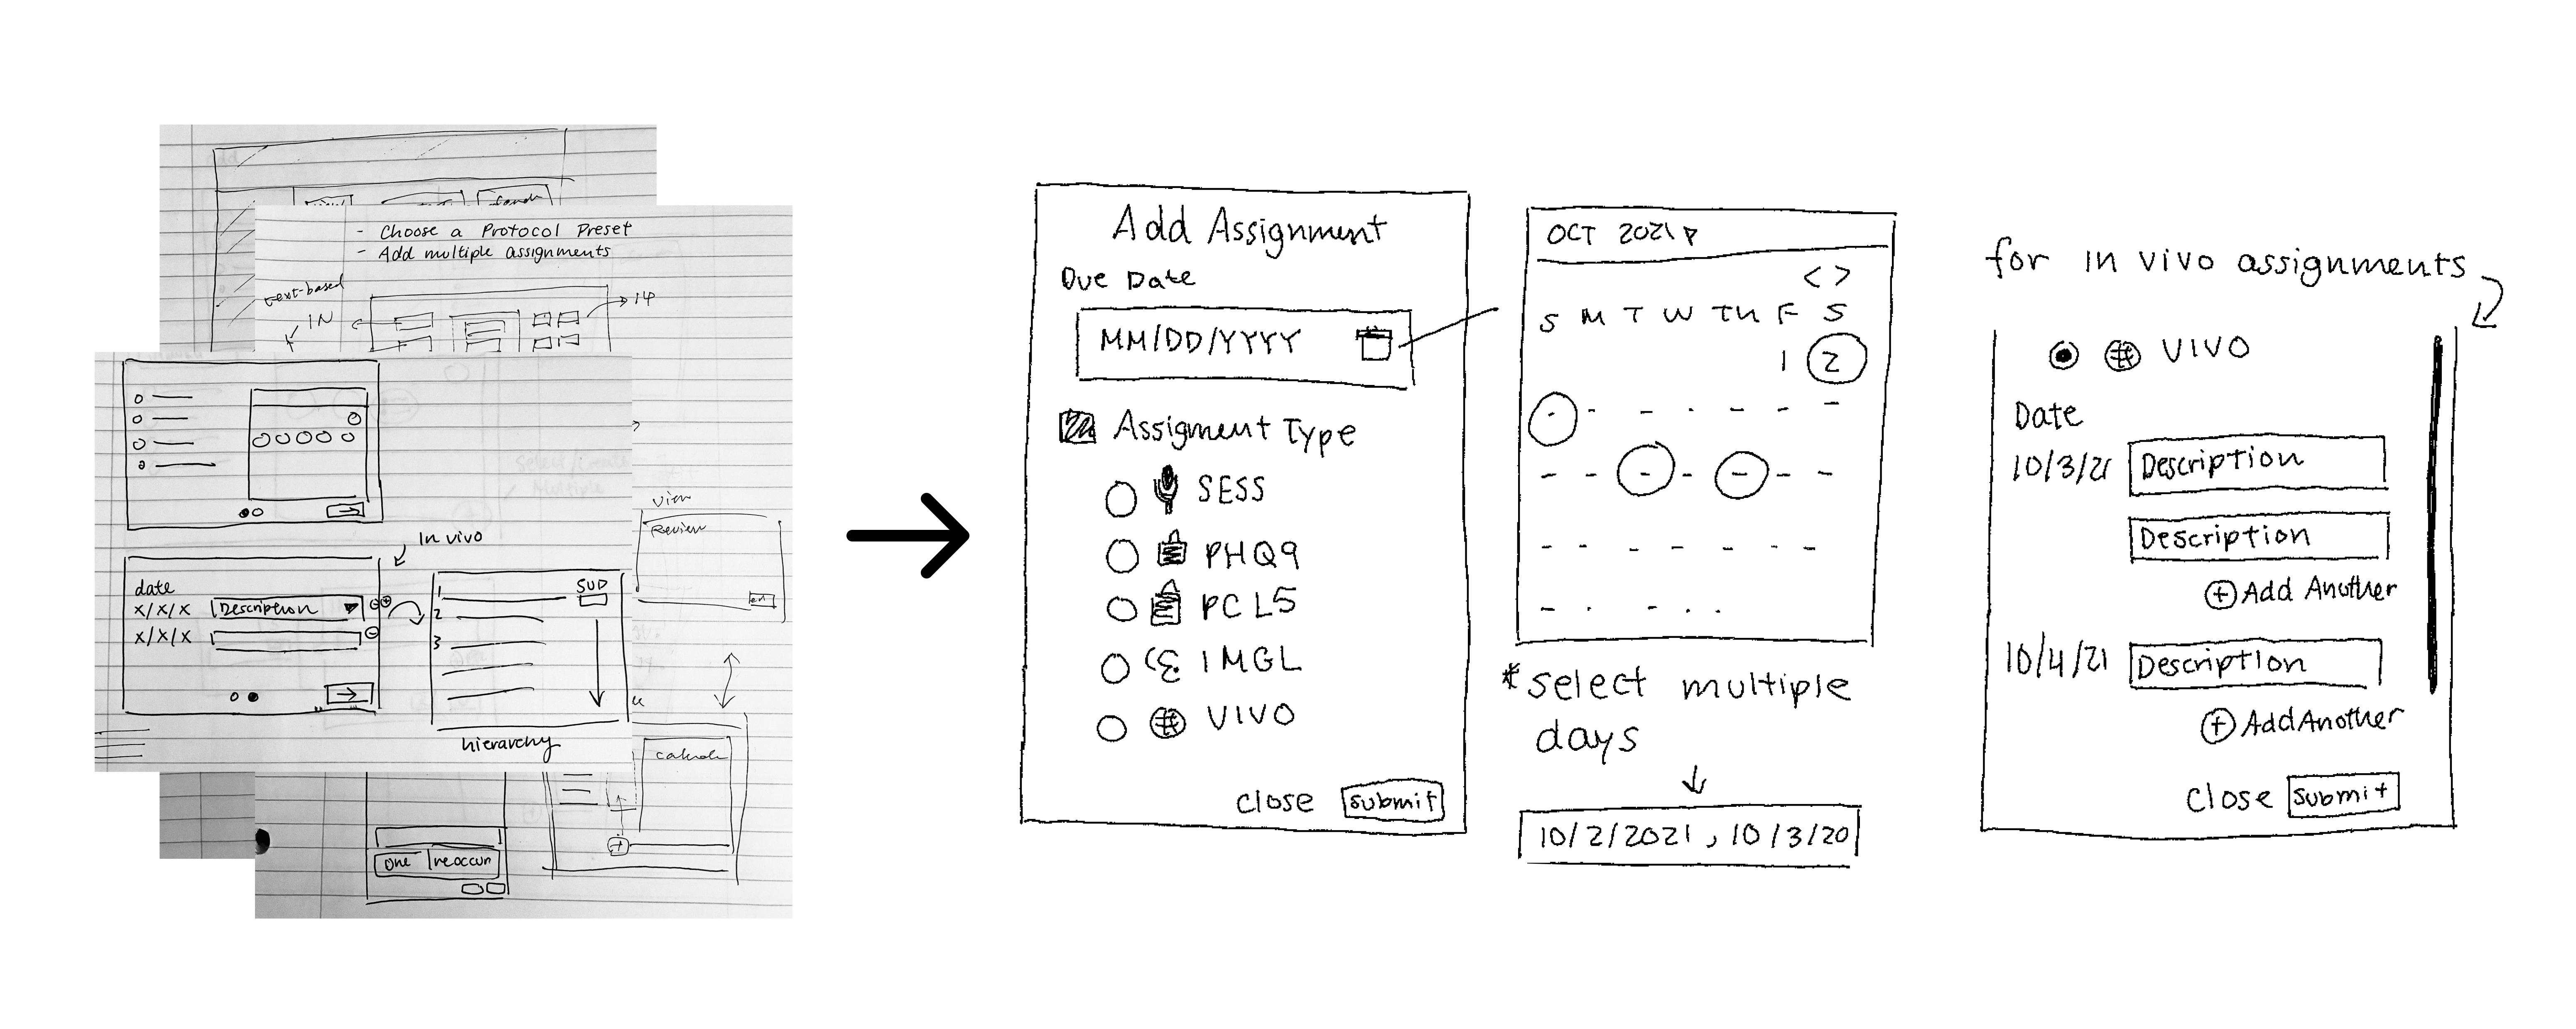 - Choose a Protocol Preset
- Add multiple assignments
text-based
IN
14
View
Review
In vivo
date
x/x/x Description
x/x/x
SUD
1
2
3
hierarchy
One reoccur
Add Assignment
Due Date
MM/DD/YYYY
Assigment Type
SESS
PHQ9
PCL5
IMGL
VIVO
Close Submit
OCT 2021
< >
S M T W TH F S
1 2
*select multiple
days
10/2/2021, 10/3/20
for in vivo assignments
VIVO
Date
10/3/21 Description
Description
+ Add Another
10/4/21 Description
+ Add Another
Close Submit